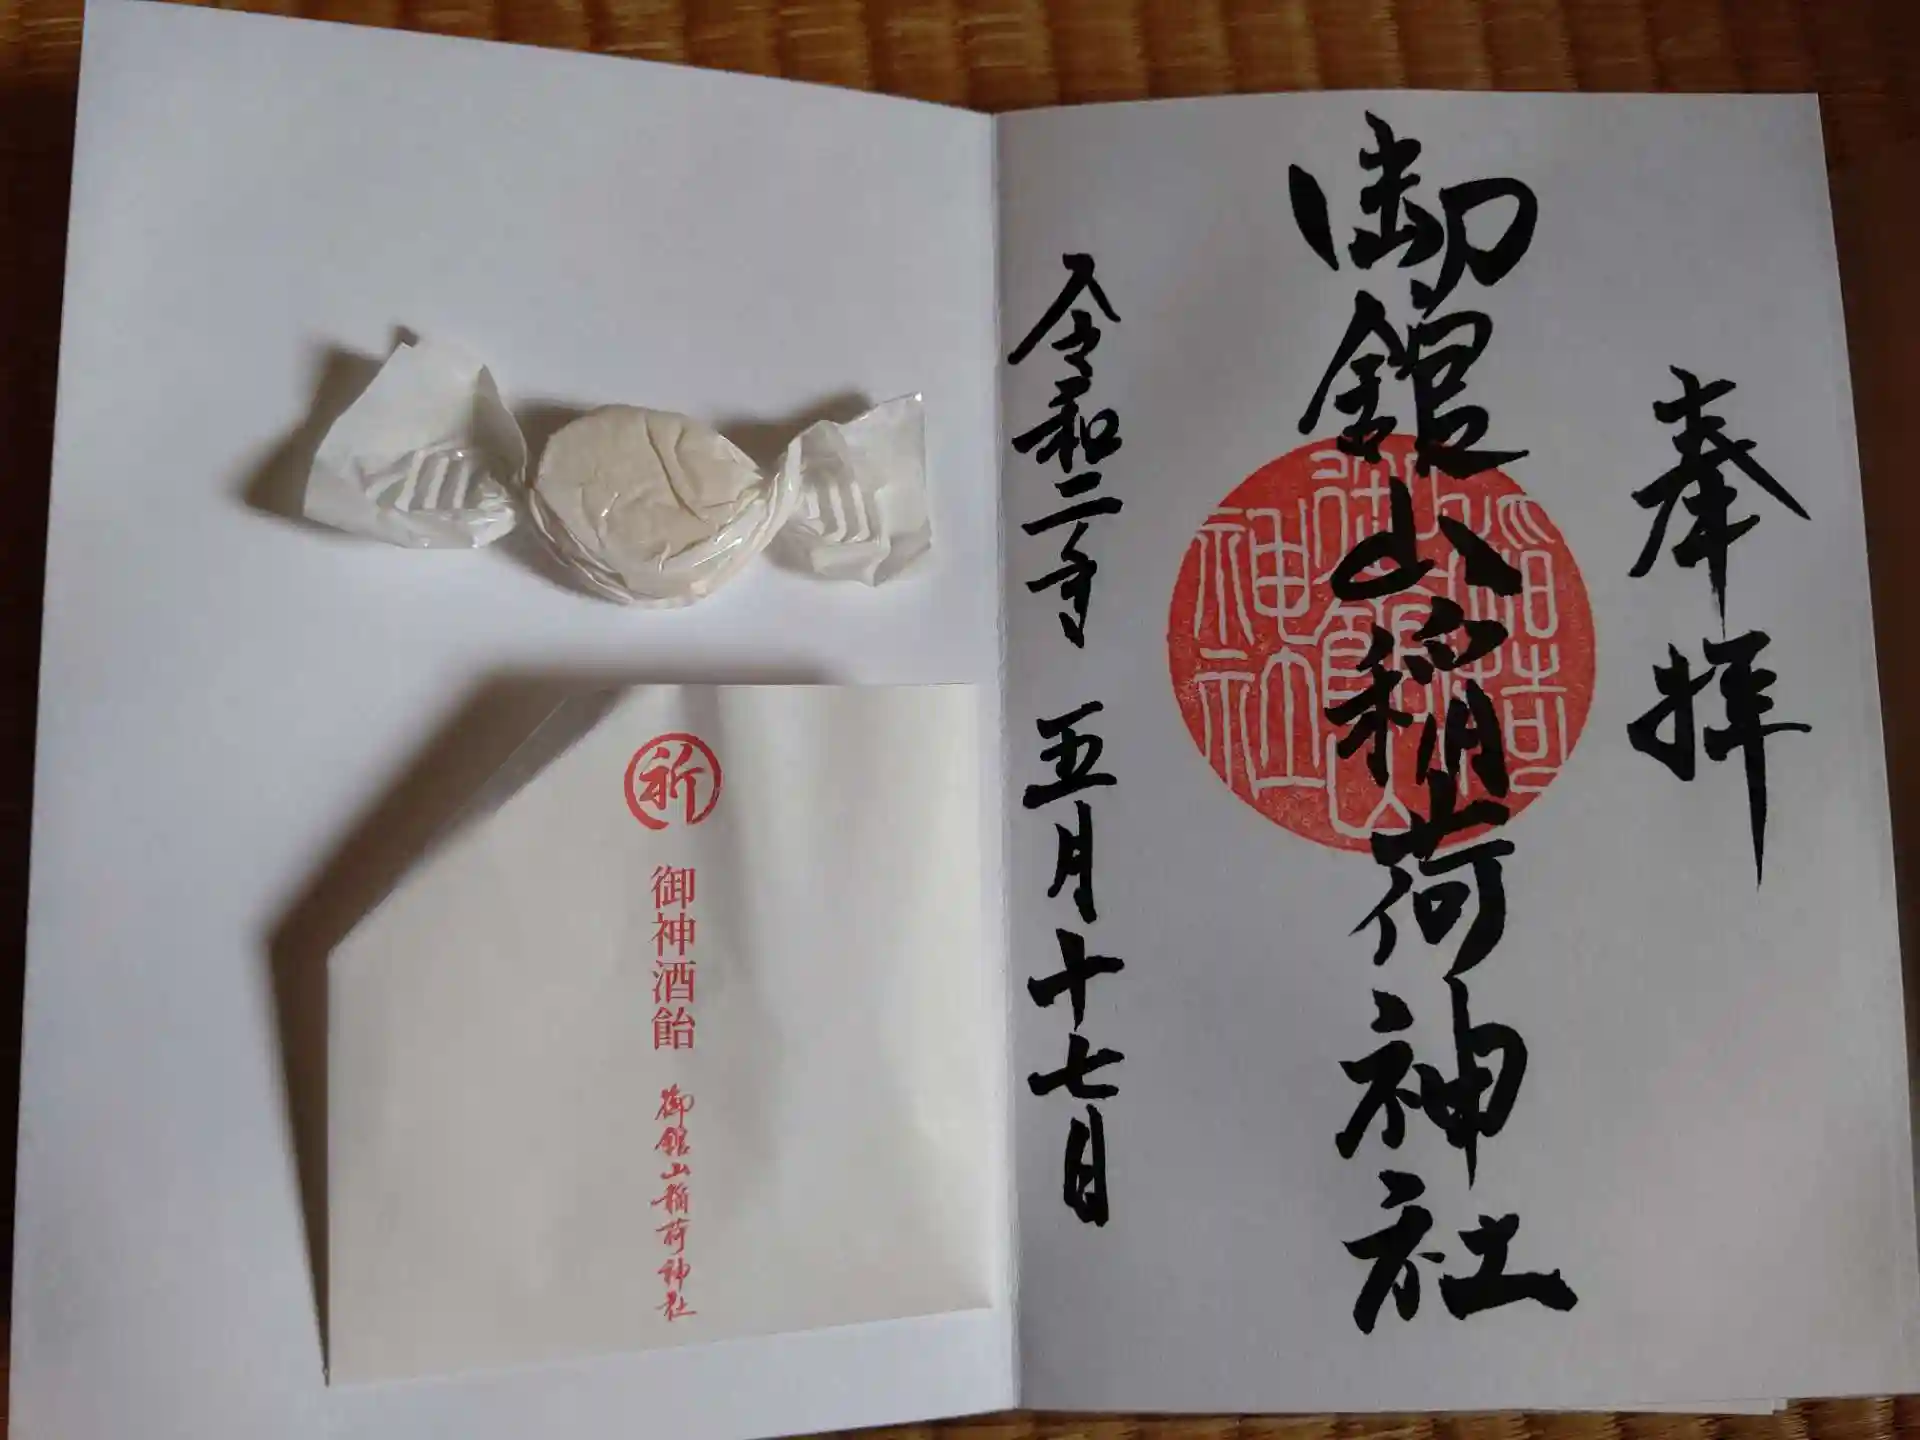 奉拝
御館山稲荷神社
令和二年 五月十七日
稲荷
御館山
神社
祈
御神酒飴
御館山稲荷神社